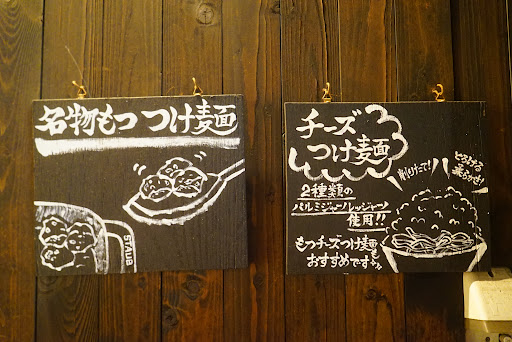 名物もつつけ麺
チーズ
つけ麺
削りたて!
とろける
美味さ!
2種類の
パルミジャーノレッジャーノ
使用!!
もつチーズつけ麺も
おすすめです